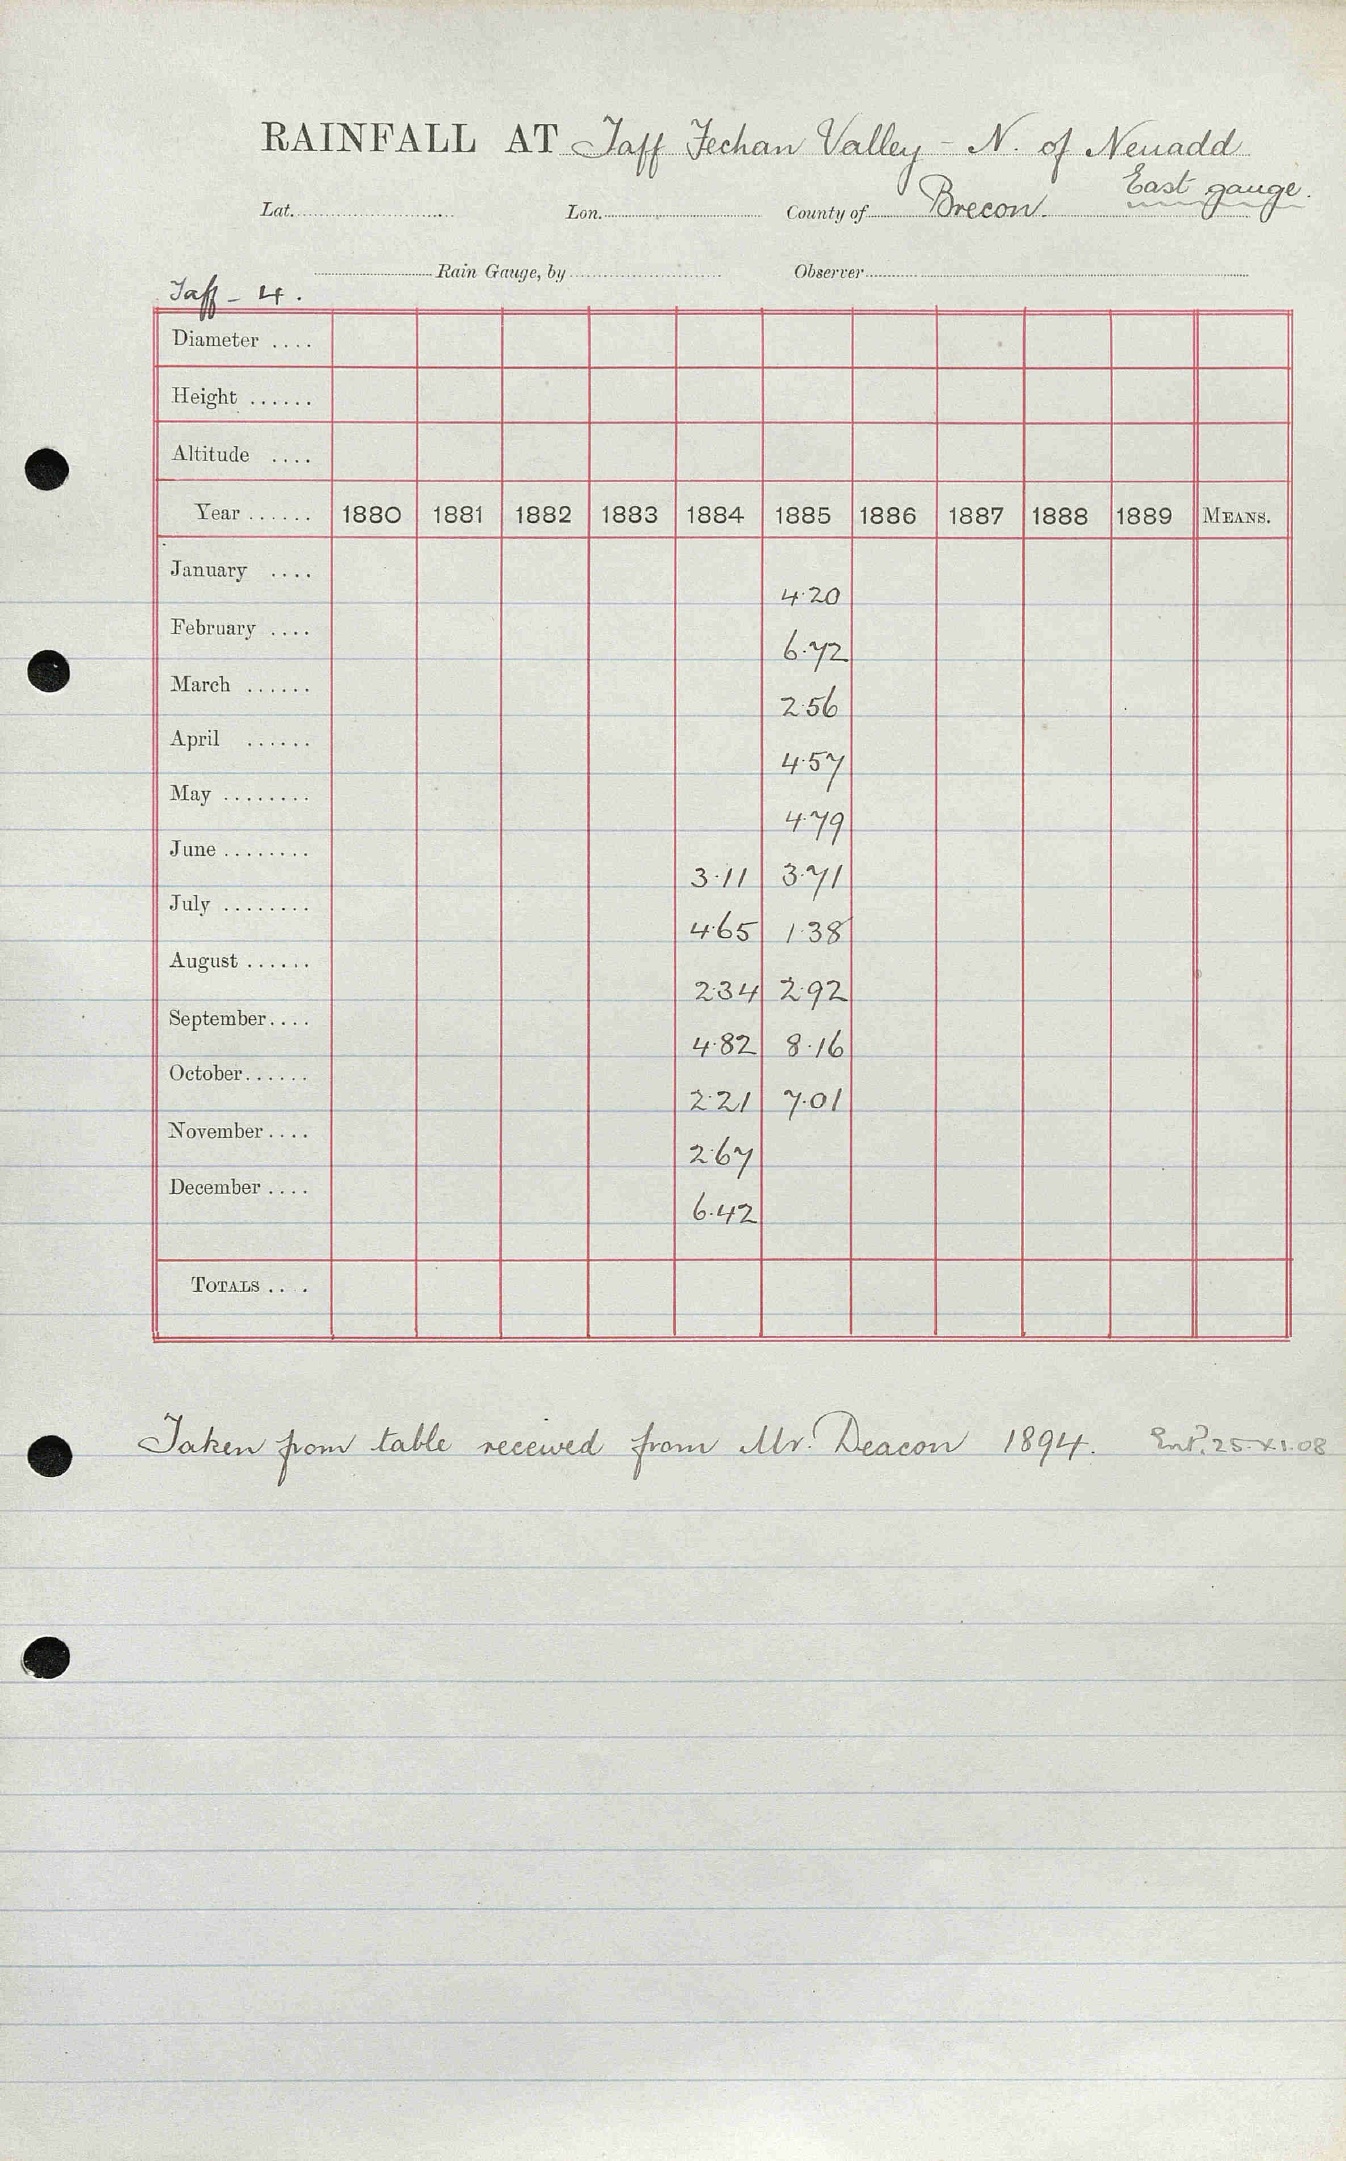 RAINFALL AT Taff Fechan Valley - N. of Neuadd
East gauge.
Lat. Lon. County of Brecon.
Rain Gauge, by Observer
Taff - 4.
Diameter ....
Height ......
Altitude ....
Year ...... 1880 1881 1882 1883 1884 1885 1886 1887 1888 1889 MEANS.
January ....
4.20
February ....
6.72
March ......
2.56
April ......
4.57
May ........
4.79
June ........
3.11 3.71
July ........
4.65 1.38
August ......
2.34 2.92
September ....
4.82 8.16
October ......
2.21 7.01
November ....
2.67
December ....
6.42
TOTALS ....
Taken from table received from Mr. Deacon 1894. Entd. 25.XI.08